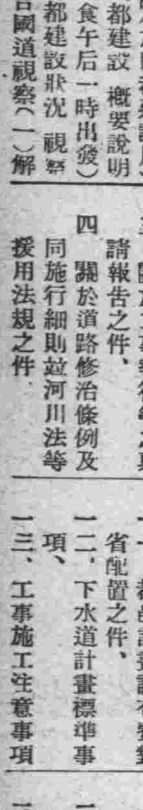 都建設 概要說明
食午后一時出發)
都建設狀況 視察
國道視察(一)解
請報告之件、
四 關於道路修治條例及
同施行細則竝河川法等
援用法規之件
省配置之件、
一二、下水道計畫標準事
項、
一三、工事施工注意事項